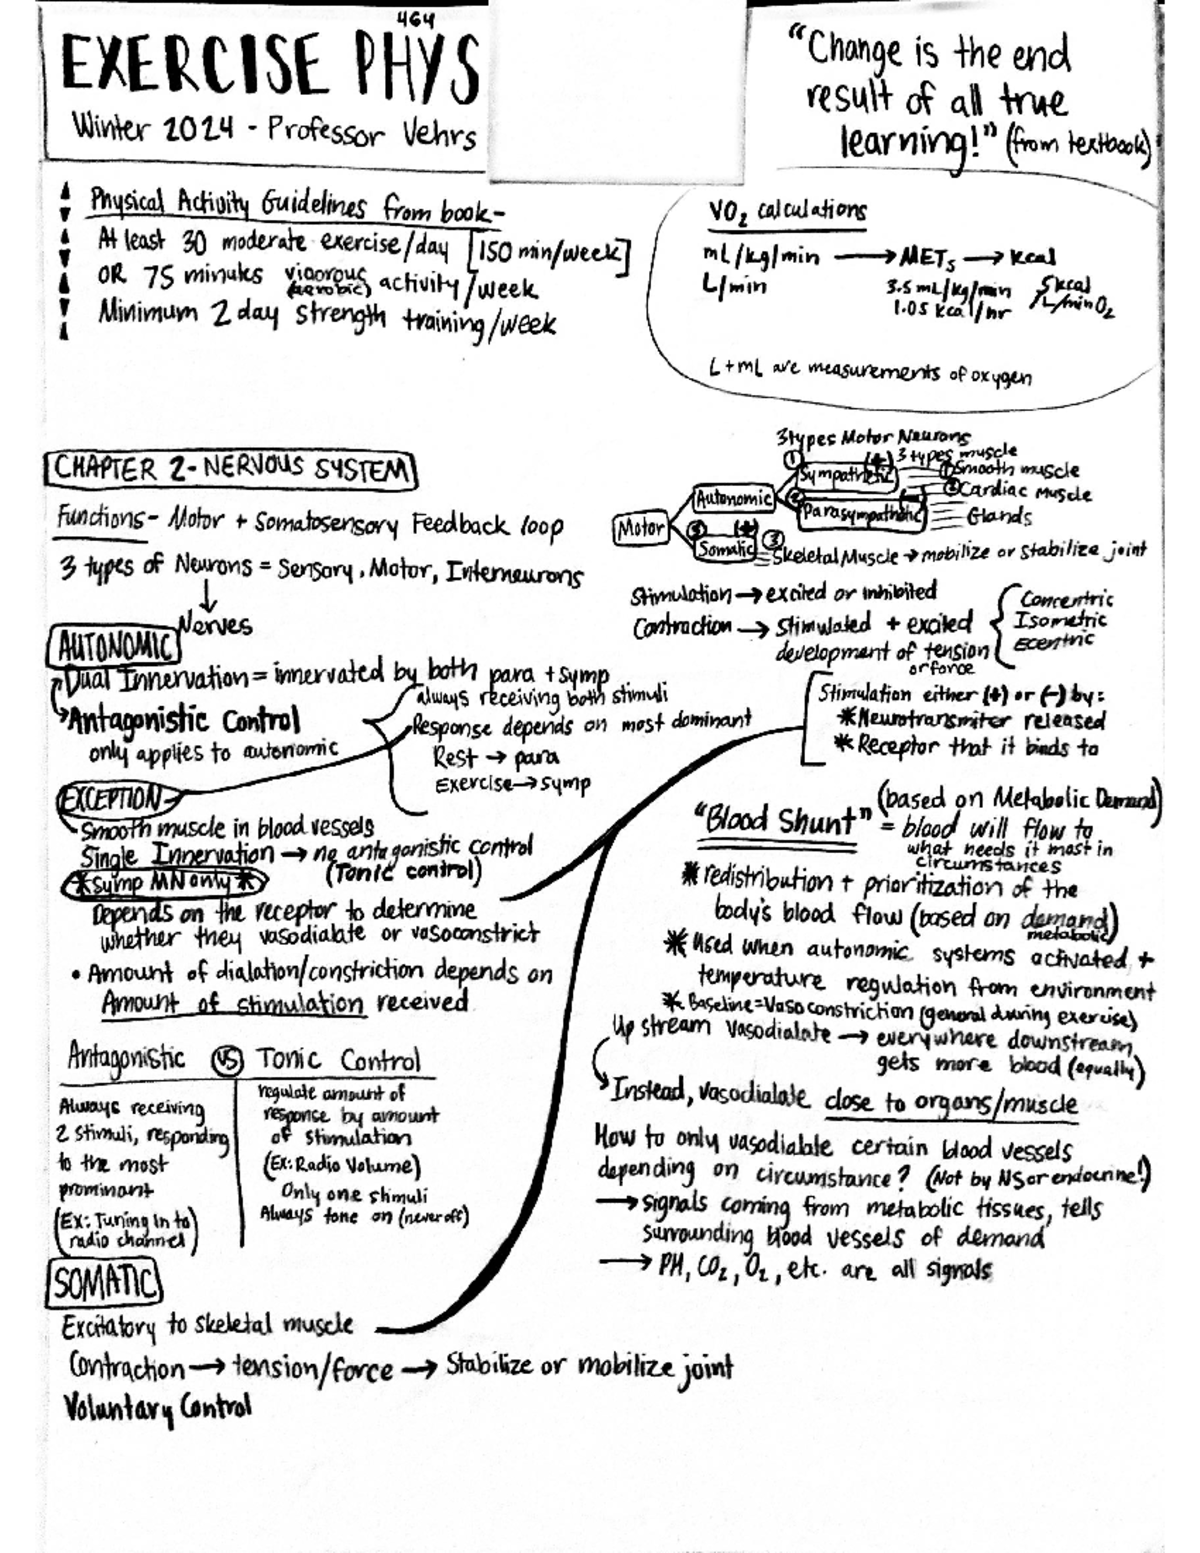 464
EXERCISE PHYS
Winter 2024 - Professor Vehrs
"Change is the end
result of all true
learning!" (from textbook)
Physical Activity Guidelines from book-
At least 30 moderate exercise/day [150 min/week]
OR 75 minutes vigorous activity/week
(aerobic)
Minimum 2 day strength training/week
VO₂ calculations
mL/kg/min → METs → kcal
L/min 3.5 mL/kg/min 5kcal
1.05 kcal/hr /L/min O₂
L + mL are measurements of oxygen
CHAPTER 2 - NERVOUS SYSTEM
Functions - Motor + Somatosensory Feedback loop
3 types of Neurons = Sensory, Motor, Interneurons
↓
Nerves
3 types Motor Neurons
① (+) 3 types muscle
Sympathetic ① Smooth muscle
Autonomic ② Cardiac Muscle
② (-) Parasympathetic Glands
Motor
③ (+)
Somatic ③ Skeletal Muscle → mobilize or stabilize joint
Stimulation → excited or inhibited
Contraction → Stimulated + excited
development of tension
or force
Concentric
Isometric
Eccentric
AUTONOMIC
Dual Innervation = innervated by both para + symp
Antagonistic Control
only applies to autonomic
always receiving both stimuli
Response depends on most dominant
Rest → para
Exercise → symp
Stimulation either (+) or (-) by:
* Neurotransmiter released
* Receptor that it binds to
EXCEPTION
Smooth muscle in blood vessels
Single Innervation → no antagonistic control
*Symp MN only* (Tonic control)
Depends on the receptor to determine
whether they vasodialate or vasoconstrict
• Amount of dialation/constriction depends on
Amount of stimulation received
"Blood Shunt" (based on Metabolic Demand)
= blood will flow to
what needs it most in
circumstances
* redistribution + prioritization of the
body's blood flow (based on demand)
metabolic
* Used when autonomic systems activated +
temperature regulation from environment
* Baseline = Vasoconstriction (general during exercise)
Up stream vasodialate → everywhere downstream
gets more blood (equally)
Instead, vasodialate close to organs/muscle
How to only vasodialate certain blood vessels
depending on circumstance? (Not by NS or endocrine!)
→ signals coming from metabolic tissues, tells
surrounding blood vessels of demand
→ PH, CO₂, O₂, etc. are all signals
Antagonistic VS Tonic Control
Always receiving
2 stimuli, responding
to the most
prominant
(Ex: Tuning in to
radio channel)
regulate amount of
response by amount
of stimulation
(Ex: Radio Volume)
Only one stimuli
Always tone on (never off)
SOMATIC
Excitatory to skeletal muscle
Contraction → tension/force → Stabilize or mobilize joint
Voluntary Control